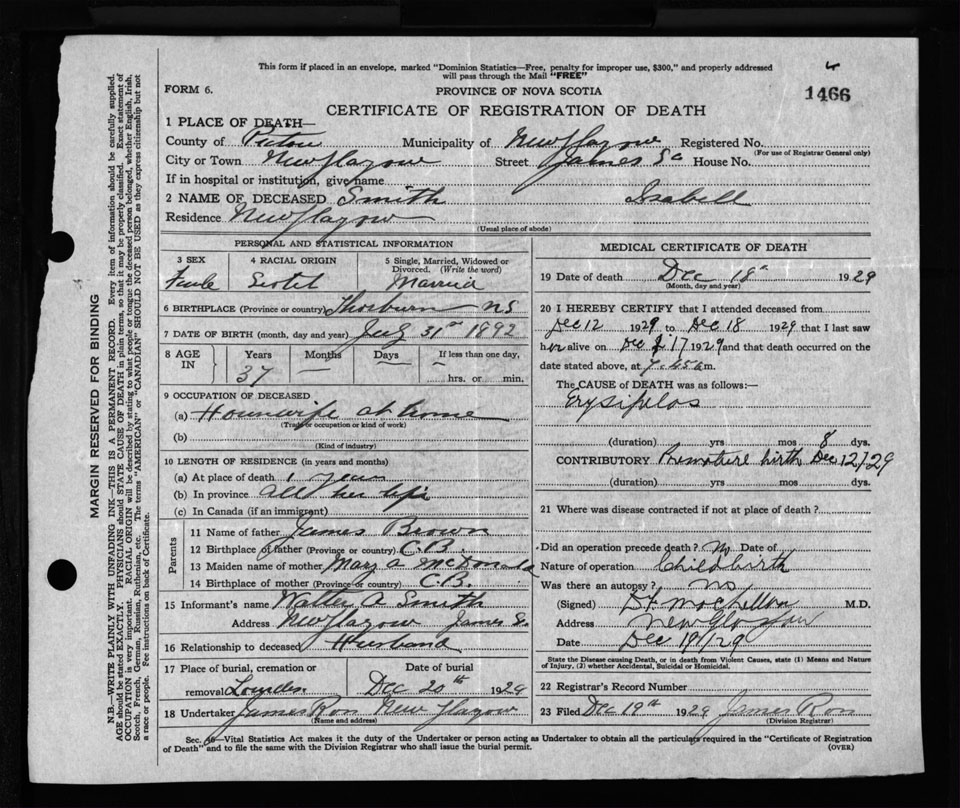 This form if placed in an envelope, marked "Dominion Statistics—Free, penalty for improper use, $300," and properly addressed
will pass through the Mail "FREE"
FORM 6.
PROVINCE OF NOVA SCOTIA
1466
CERTIFICATE OF REGISTRATION OF DEATH
1 PLACE OF DEATH—
County of Pictou Municipality of New Glasgow Registered No.
(For use of Registrar General only)
City or Town New Glasgow Street James St House No.
If in hospital or institution, give name
2 NAME OF DECEASED Smith Isabell
Residence New Glasgow
(Usual place of abode)
PERSONAL AND STATISTICAL INFORMATION
3 SEX 4 RACIAL ORIGIN 5 Single, Married, Widowed or Divorced. (Write the word)
Female Scotch Married
6 BIRTHPLACE (Province or country) Thorburn NS
7 DATE OF BIRTH (month, day and year) July 31st 1892
8 AGE IN Years Months Days If less than one day,
37 — — hrs. or min.
9 OCCUPATION OF DECEASED
(a) Housewife at home
(Trade or occupation or kind of work)
(b)
(Kind of industry)
10 LENGTH OF RESIDENCE (in years and months)
(a) At place of death 1 year
(b) In province all her life
(c) In Canada (if an immigrant)
Parents
11 Name of father James Brown
12 Birthplace of father (Province or country) C.B.
13 Maiden name of mother Mary A McDonald
14 Birthplace of mother (Province or country) C.B.
15 Informant's name Walter A Smith
Address New Glasgow James St
16 Relationship to deceased Husband
17 Place of burial, cremation or Date of burial
removal Lourdes Dec 20th 1929
18 Undertaker James Ross New Glasgow
(Name and address)
MEDICAL CERTIFICATE OF DEATH
19 Date of death Dec 18th 1929
(Month, day and year)
20 I HEREBY CERTIFY that I attended deceased from
Dec 12 1929 to Dec 18 1929 that I last saw
her alive on Dec 17 1929 and that death occurred on the
date stated above, at 7.55 a m.
The CAUSE of DEATH was as follows:—
Erysipelas
(duration) yrs mos 8 dys.
CONTRIBUTORY Premature birth Dec 12/29
(duration) yrs mos dys.
21 Where was disease contracted if not at place of death?
Did an operation precede death? Date of
Nature of operation Childbirth
Was there an autopsy? No
(Signed) M.D.
Address New Glasgow
Date Dec 19/29
State the Disease causing Death, or in death from Violent Causes, state (1) Means and Nature
of Injury, (2) whether Accidental, Suicidal or Homicidal.
22 Registrar's Record Number
23 Filed Dec 19th 1929 James Ross
(Division Registrar)
Sec. —Vital Statistics Act makes it the duty of the Undertaker or person acting as Undertaker to obtain all the particulars required in the "Certificate of Registration
of Death" and to file the same with the Division Registrar who shall issue the burial permit.
(OVER)
MARGIN RESERVED FOR BINDING
N.B.—WRITE PLAINLY WITH UNFADING INK—THIS IS A PERMANENT RECORD. Every item of information should be carefully supplied.
AGE should be stated EXACTLY. PHYSICIANS should STATE CAUSE OF DEATH in plain terms, so that it may be properly classified. Exact statement of
OCCUPATION is very important. RACIAL ORIGIN will be described by stating to what people or tongue the deceased person belonged, whether English, Irish,
Scotch, French, German, Russian, Ruthenian, etc. The terms "AMERICAN" or "CANADIAN" SHOULD NOT BE USED as they express citizenship but not
a race or people. Fee instructions on back of Certificate.